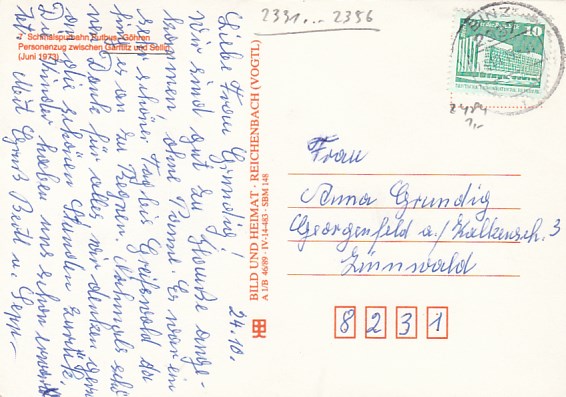 7 Schmalspurbahn Putbus-Göhren
Personenzug zwischen Garftitz und Sellin
(Juni 1973)
2331 ... 2356
24.10.
Liebe Frau Grundig!
Wir sind gut zu Hause ange-
kommen ohne Panne. Es war ein
sehr schöner Tag bis Greifswald da
fing es an zu Regnen. Nochmals schö
nen Dank für alles wir denken gern
an die schönen Stunden zurück.
Die Kinder haben uns schon erwartet
Mit Gruß Bertl u. Sepp
BILD UND HEIMAT · REICHENBACH (VOGTL)
A 1/B 46/89 · IV-14-483 · SBM 148
10
2484
1,-
Frau
Anna Grundig
Georgenfeld a/Kalkensch. 3
Zinnwald
8 2 3 1